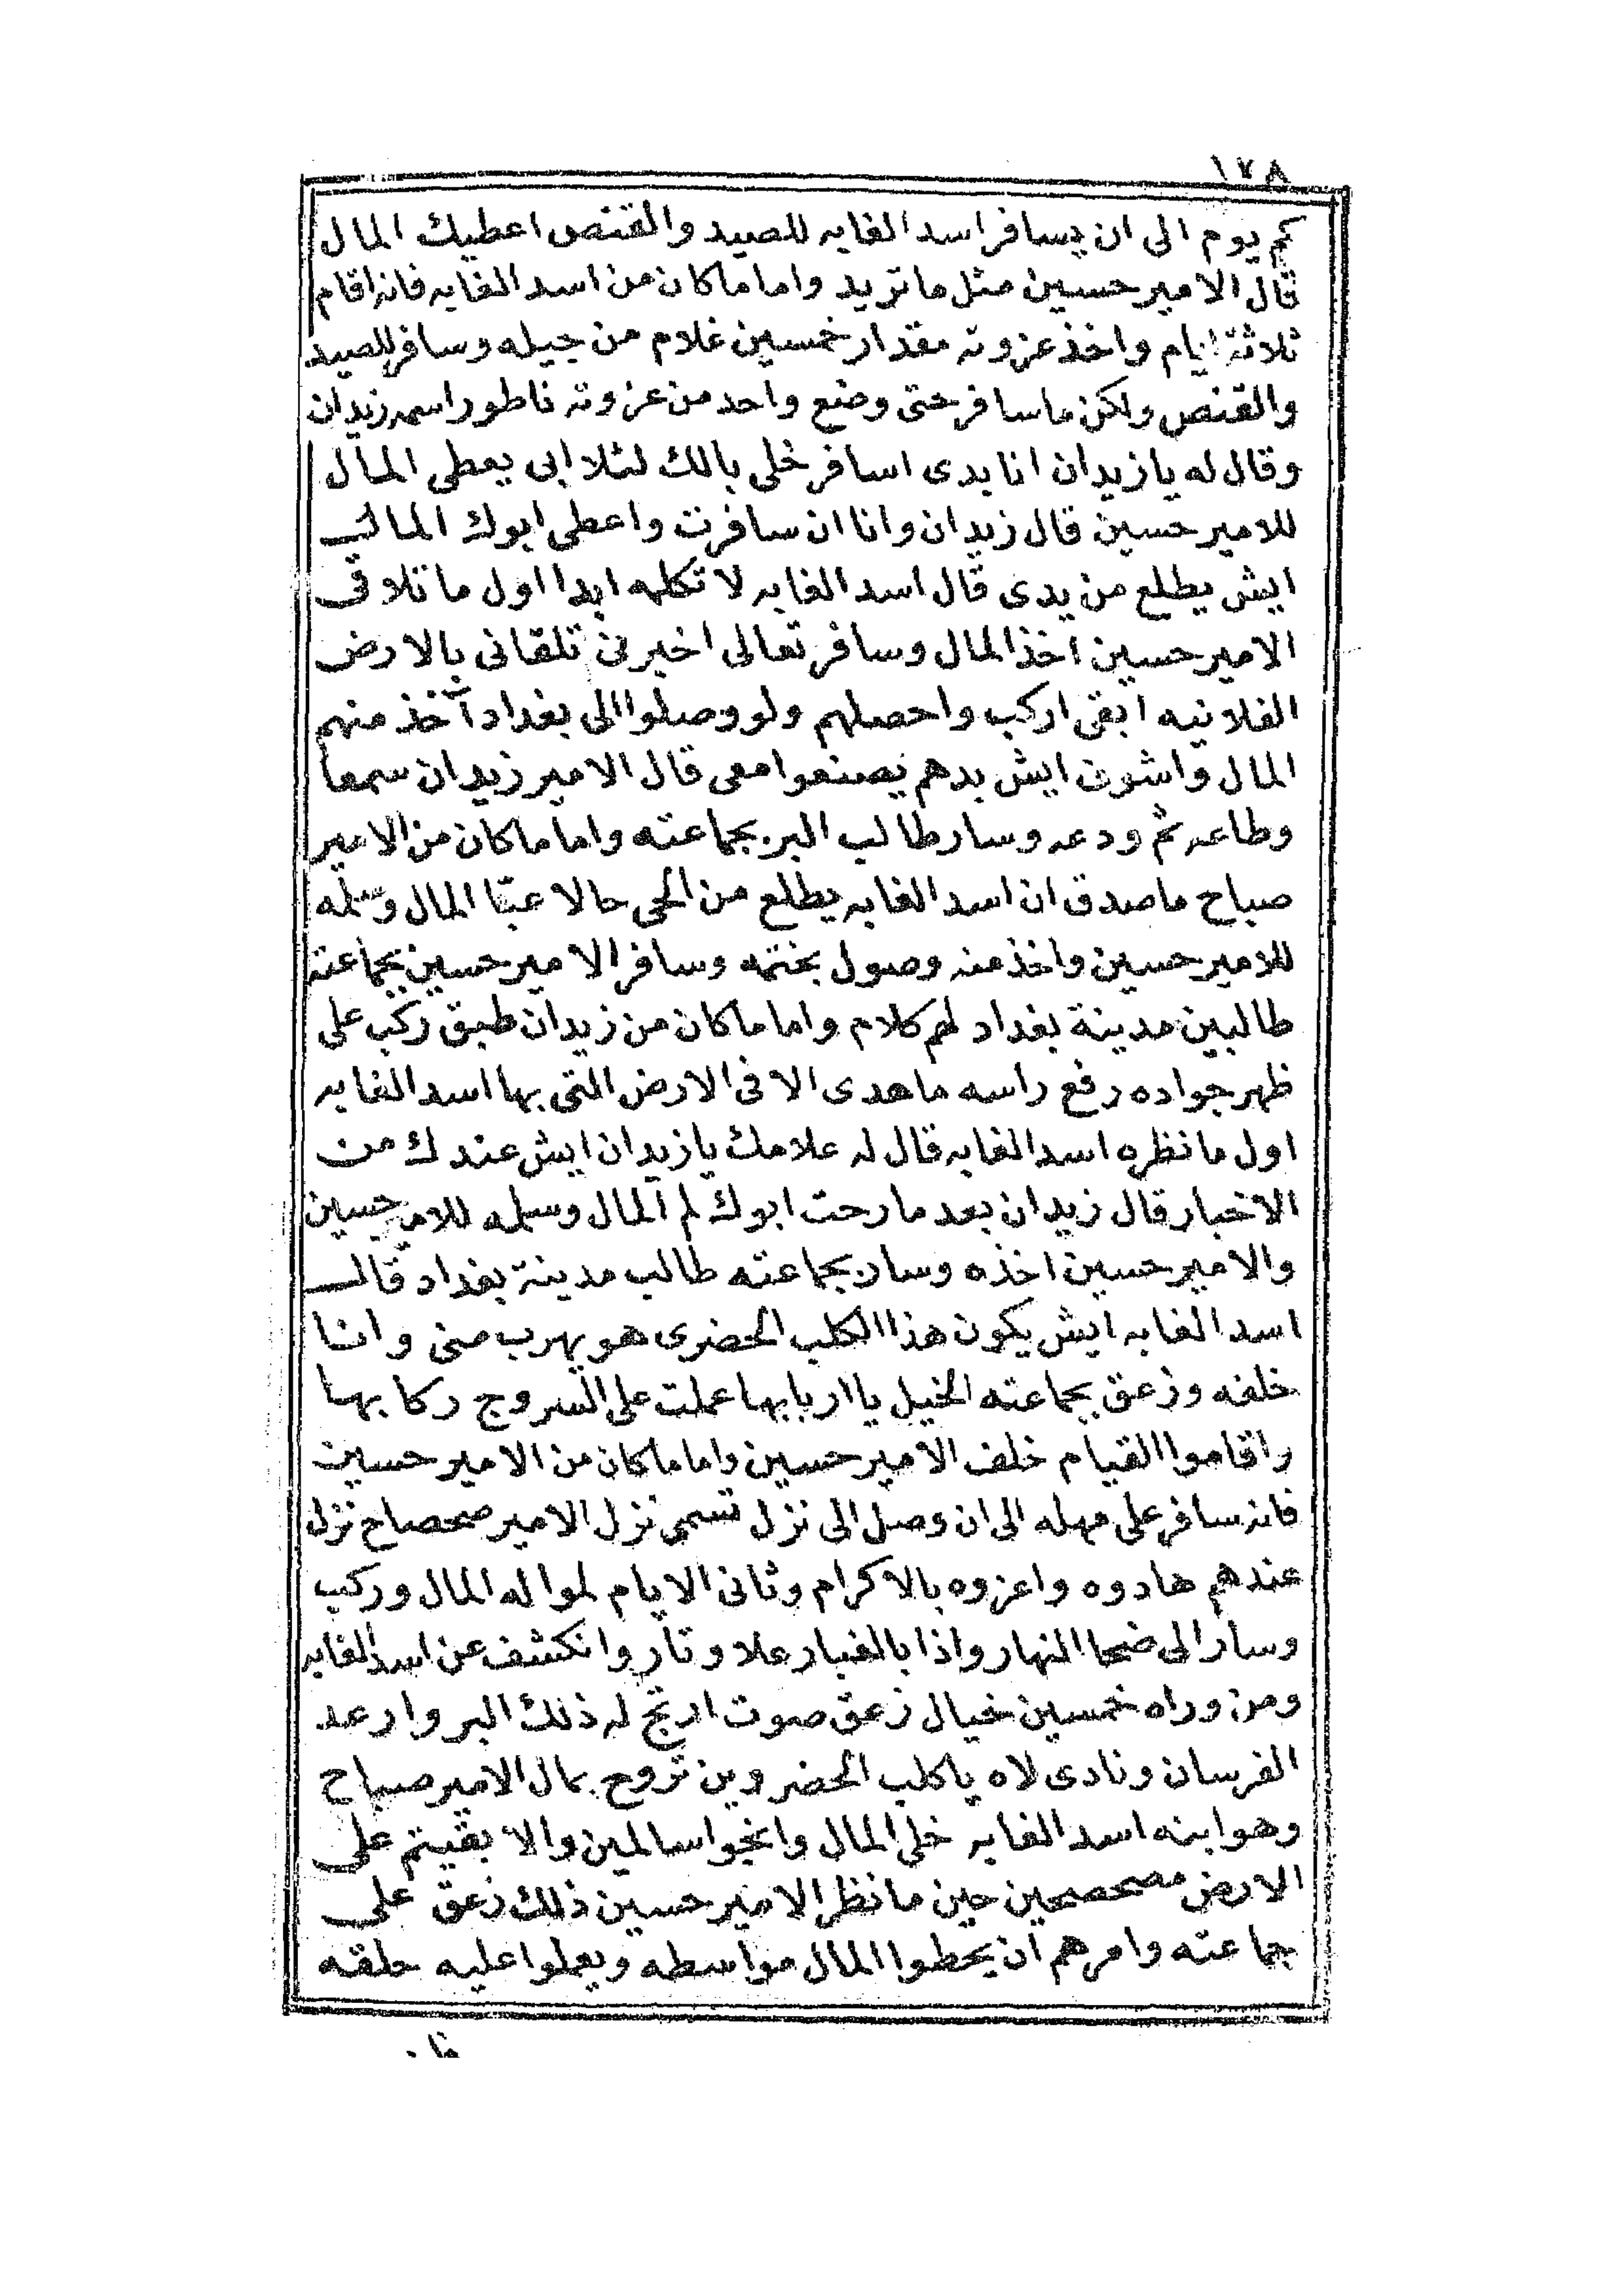 ١٧٨
كم يوم الى ان يسافر اسد الغابه للصيد والقنص اعطيك المال
قال الامير حسين مثل ما تريد واما ما كان من اسد الغابه فانه اقام
ثلاثة ايام واخذ عزوته مقدار خمسين غلام من جيله وسافر للصيد
والقنص ولكن ما سافر حتى وضع واحد من عزوته ناطور اسمه زيدان
وقال له يا زيدان انا بدى اسافر خلى بالك لئلا ابى يعطى المال
للامير حسين قال زيدان وانا ان سافرت واعطى ابوك المال
ايش يطلع من يدى قال اسد الغابه لا تكلمه ابدا اول ما تلاقى
الامير حسين اخذ المال وسافر تعالى اخبرنى تلقانى بالارض
الفلانيه ابقى اركب واحصلهم ولو وصلوا الى بغداد آخذ منهم
المال واشوف ايش بدهم يصنعوا معى قال الامير زيدان سمعا
وطاعه ثم ودعه وسار طالب البر بجماعته واما ما كان من الامير
صباح ما صدق ان اسد الغابه يطلع من الحى حالا عبّا المال وسلمه
للامير حسين واخذ منه وصول بختمه وسافر الامير حسين بجماعته
طالبين مدينة بغداد لهم كلام واما ما كان من زيدان طبق ركب على
ظهر جواده رفع راسه ما هدى الا فى الارض التى بها اسد الغابه
اول ما نظره اسد الغابه قال له علامك يا زيدان ايش عندك من
الاخبار قال زيدان بعد ما رحت ابوك لم المال وسلمه للامير حسين
والامير حسين اخذه وسار بجماعته طالب مدينة بغداد قال
اسد الغابه ايش يكون هذا الكلب الحضرى هو يهرب منى وانا
خلفه وزعق بجماعته الخيل يا اربابها عملت على السروج ركابها
واقاموا القيام خلف الامير حسين واما ما كان من الامير حسين
فانه سافر على مهله الى ان وصل الى نزل تسمى نزل الامير صحصاح نزل
عندهم هادوه واعزوه بالاكرام وثانى الايام لموا له المال وركب
وسار الى ضحا النهار واذا بالغبار علا وتار وانكشف عن اسد الغابه
ومن وراه خمسين خيال زعق صوت ارتج له ذلك البر وارعد
الفرسان ونادى لاه يا كلب الحضر وين تروح بمال الامير صباح
وهو ابنه اسد الغابه خلى المال وانجوا سالمين والا بقيتم على
الارض مصحصحين حين ما نظر الامير حسين ذلك زعق على
جماعته وامرهم ان يحطوا المال مواسطه ويعملوا عليه حلقه